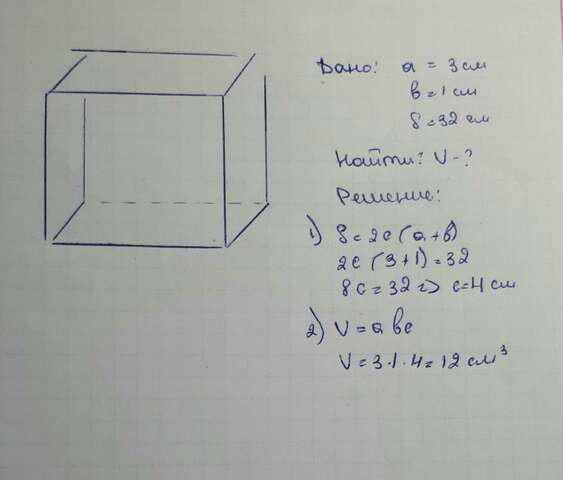 Дано: a = 3 см
b = 1 см
S = 32 см
Найти: V - ?
Решение:
1) S = 2c (a+b)
2c (3+1) = 32
8c = 32 => c=4 см
2) V = abc
V = 3·1·4 = 12 см³